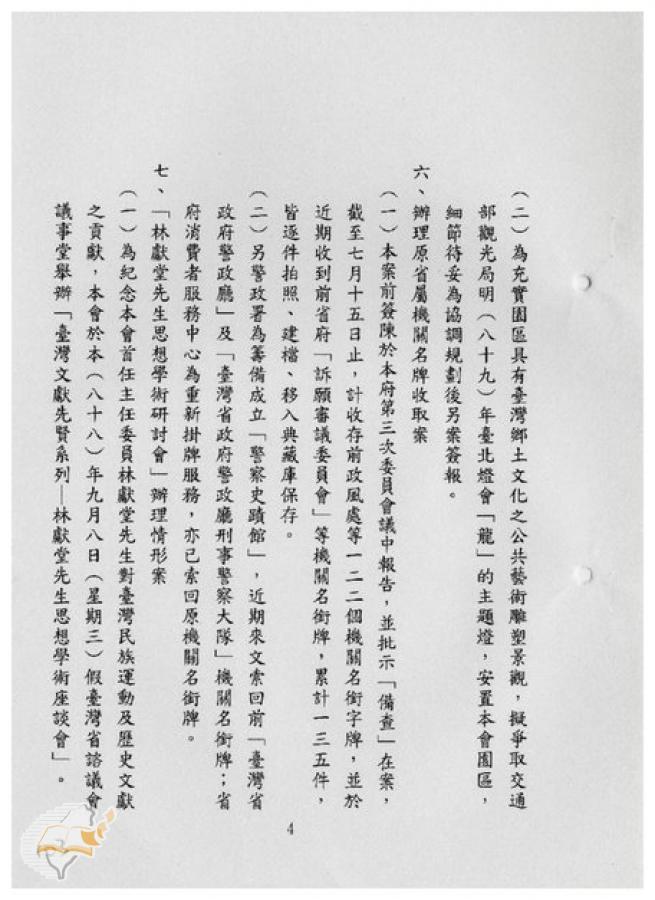 (二)為充實園區具有臺灣鄉土文化之公共藝術雕塑景觀,擬爭取交通
部觀光局明(八十九)年臺北燈會「龍」的主題燈,安置本會園區,
細節待妥為協調規劃後另案簽報。
六、辦理原省屬機關名牌收取案
(一)本案前簽陳於本府第三次委員會議中報告,並批示「備查」在案,
截至七月十五日止,計收存前政風處等一二二個機關名銜字牌,並於
近期收到前省府「訴願審議委員會」等機關名銜牌,累計一三五件,
皆逐件拍照、建檔、移入典藏庫保存。
(二)另警政署為籌備成立「警察史蹟館」,近期來文索回前「臺灣省
政府警政廳」及「臺灣省政府警政廳刑事警察大隊」機關名銜牌;省
府消費者服務中心為重新掛牌服務,亦已索回原機關名銜牌。
七、「林獻堂先生思想學術研討會」辦理情形案
(一)為紀念本會首任主任委員林獻堂先生對臺灣民族運動及歷史文獻
之貢獻,本會於本(八十八)年九月八日(星期三)假臺灣省諮議會
議事堂舉辦「臺灣文獻先賢系列—林獻堂先生思想學術座談會」。
4